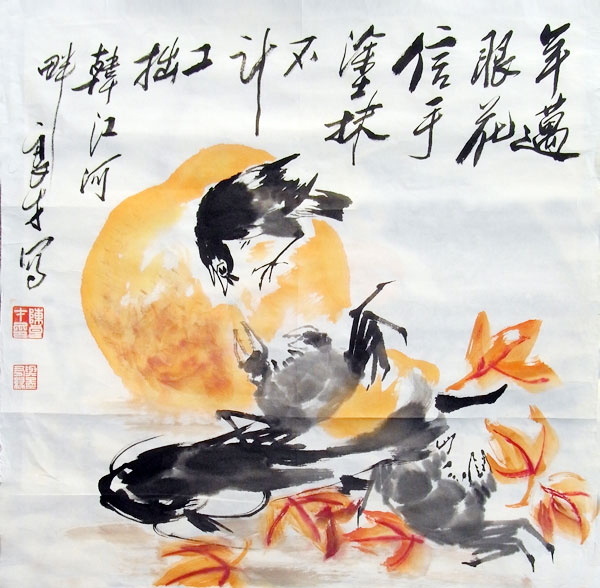 年邁
眼花
信手
塗抹
不
計
工
拙
韓江河
畔
良才寫